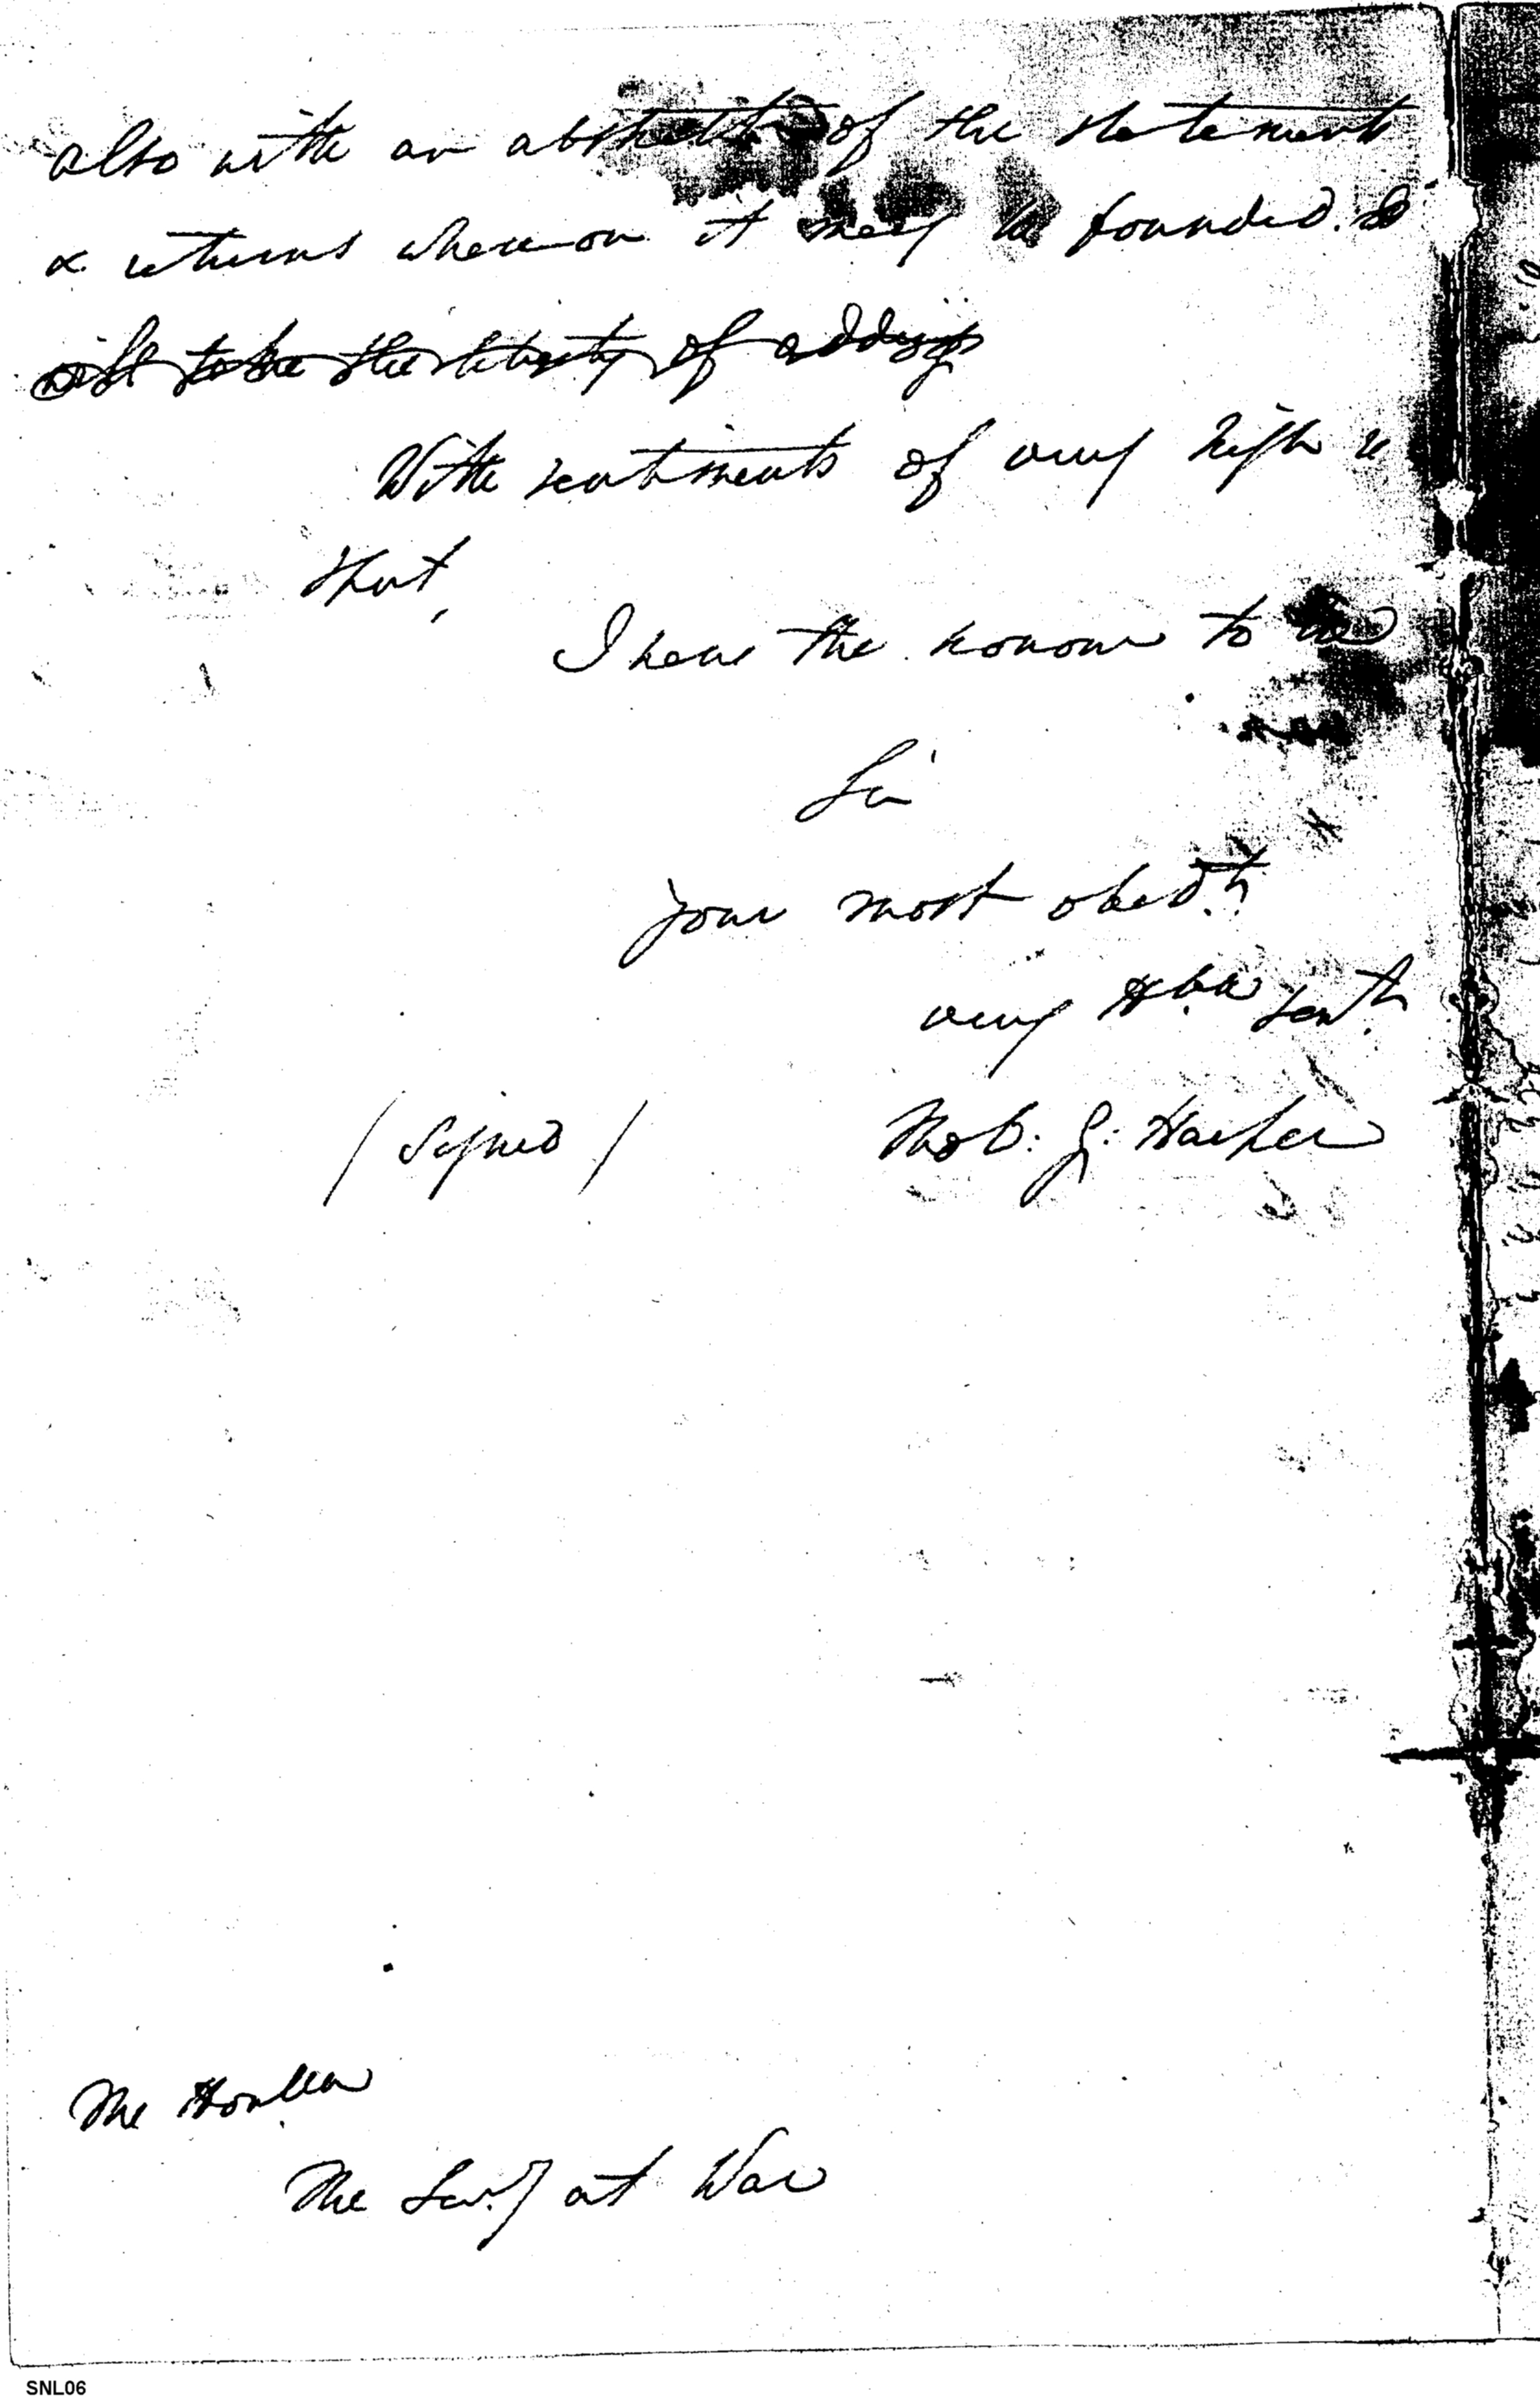 also with an abstract of the statements
& returns whereon it may be founded. &
will take the liberty of adding
With sentiments of very high re
spect,
I have the honour to be
Sir
your most obedt.
very Hble servt.
Rob: G: Harper
(Signed)
The Honble
The Secy at War
SNL06